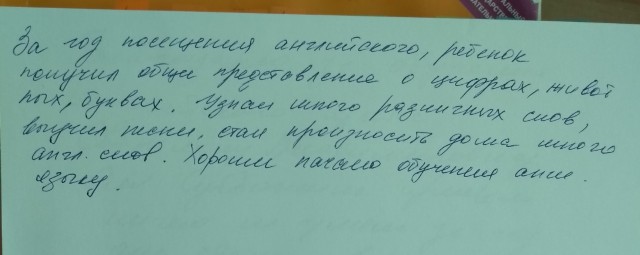 За год посещения английского, ребенок
получил общее представление о цифрах, живот
ных, буквах. Узнал много различных слов,
выучил песни, стал произносить дома много
англ. слов. Хорошее начало обучения англ.
языку.